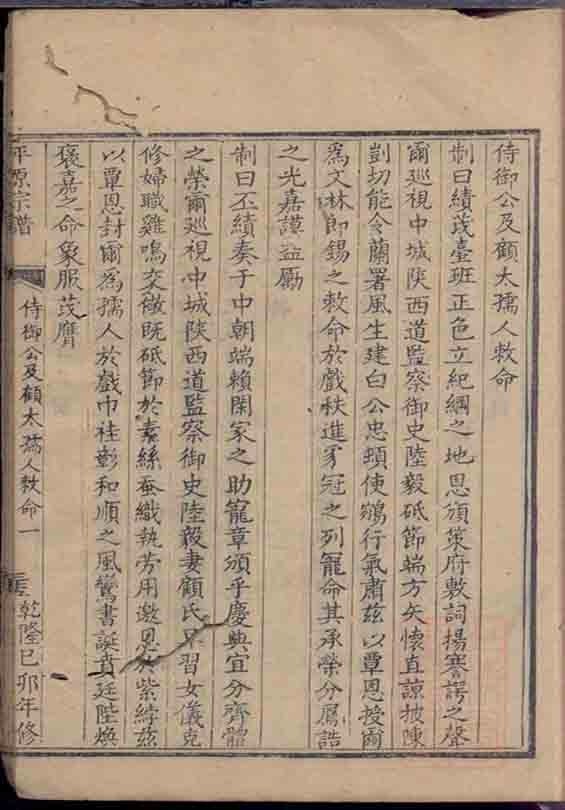 侍御公及顧太孺人敕命
制曰績茂臺班正色立紀綱之地恩頒策府敷詞揚謇諤之聲
爾巡視中城陝西道監察御史陸毅砥節端方矢懷直諒披陳
剴切能令蘭署風生建白公忠頓使鵷行氣肅茲以覃恩授爾
為文林郎錫之敕命於戲秩進豸冠之列寵命其承榮分鳳誥
之光嘉謨益勵
制曰丕績奏于中朝端賴閑家之助寵章頒乎慶典宜分齊體
之榮爾巡視中城陝西道監察御史陸毅妻顧氏早習女儀克
修婦職雞鳴交儆既砥節於素絲蚕織執勞用邀恩於紫綍茲
以覃恩封爾為孺人於戲巾袿彰和順之風鸞書誕賁廷陛煥
褒嘉之命象服茂膺
平原宗譜 侍御公及顧太孺人敕命 一 乾隆己卯年修